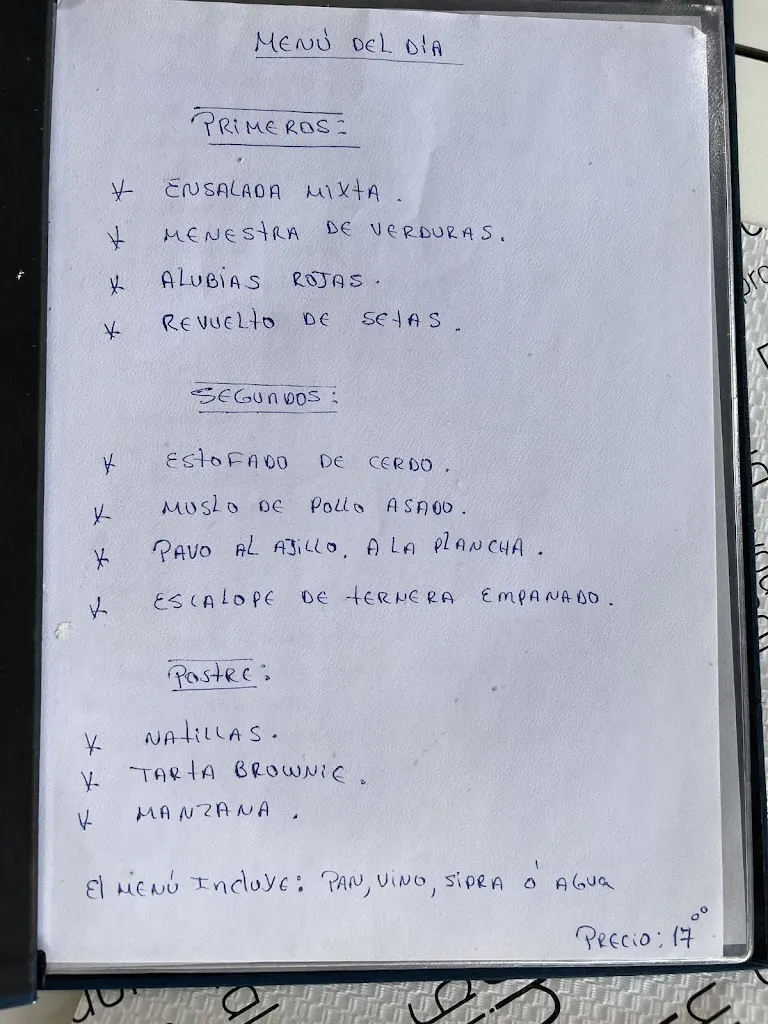 MENÚ DEL DÍA
PRIMEROS:
* ENSALADA MIXTA.
* MENESTRA DE VERDURAS.
* ALUBIAS ROJAS.
* REVUELTO DE SETAS.
SEGUNDOS:
* ESTOFADO DE CERDO.
* MUSLO DE POLLO ASADO.
* PAVO AL AJILLO, A LA PLANCHA.
* ESCALOPE DE TERNERA EMPANADO.
POSTRE:
* NATILLAS.
* TARTA BROWNIE.
* MANZANA.
El MENÚ INCLUYE: PAN, VINO, SIDRA Ó AGUA
PRECIO: 17°°